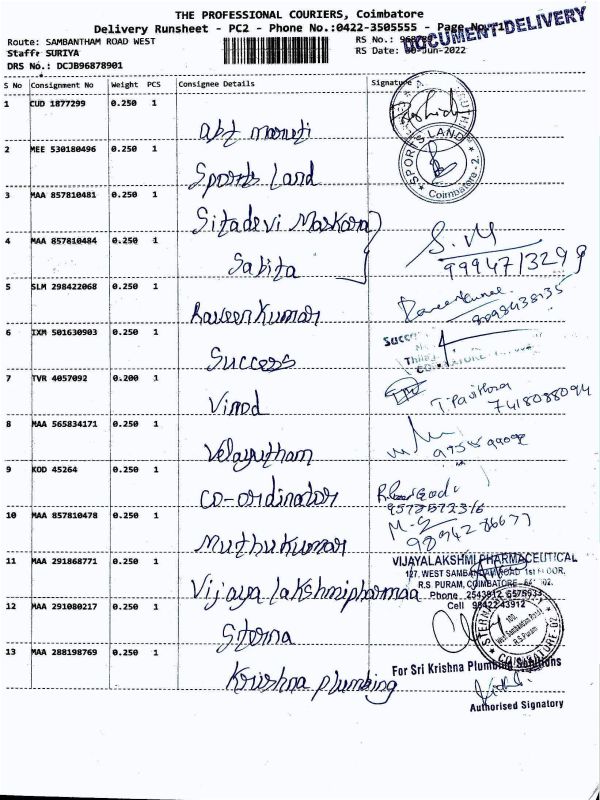 THE PROFESSIONAL COURIERS, Coimbatore
Delivery Runsheet - PC2 - Phone No.:0422-3505555 - Page No.:
DOCUMENT DELIVERY
Route: SAMBANTHAM ROAD WEST
RS No.:
Staff: SURIYA
RS Date: 30-Jun-2022
DRS No.: DCJB96878901
S No Consignment No Weight PCS Consignee Details Signature
1 CUD 1877299 0.250 1
abt maruti
SPORTS LAND
Coimbatore-2.
2 MEE 530180496 0.250 1
Sports Land
3 MAA 857810481 0.250 1
Sitadevi Maskara
4 MAA 857810484 0.250 1
Sabita
S.M
9994713299
5 SLM 298422068 0.250 1
Raveen Kumar
8098438135
6 IXM 501630903 0.250 1
Success
Succ
7 TVR 4057092 0.200 1
Vinod
T. Pavithra
7418088094
8 MAA 565834171 0.250 1
Velayutham
9 KOD 45264 0.250 1
Co-ordinator
10 MAA 857810478 0.250 1
Muthu Kumar
11 MAA 291868771 0.250 1
VIJAYALAKSHMI PHARMACEUTICAL
127, WEST SAMBANDAM ROAD 1st FLOOR,
R.S. PURAM, COIMBATORE - 641 002.
Vijaya lakshmipharmaa
Phone 2543912 6575933
Cell 98422 43912
12 MAA 291080217 0.250 1
Sterna
West Sambandam Road
R.S. Puram
COIMBATORE
13 MAA 288198769 0.250 1
Krishna plumbing
For Sri Krishna Plumbing Solutions
Authorised Signatory